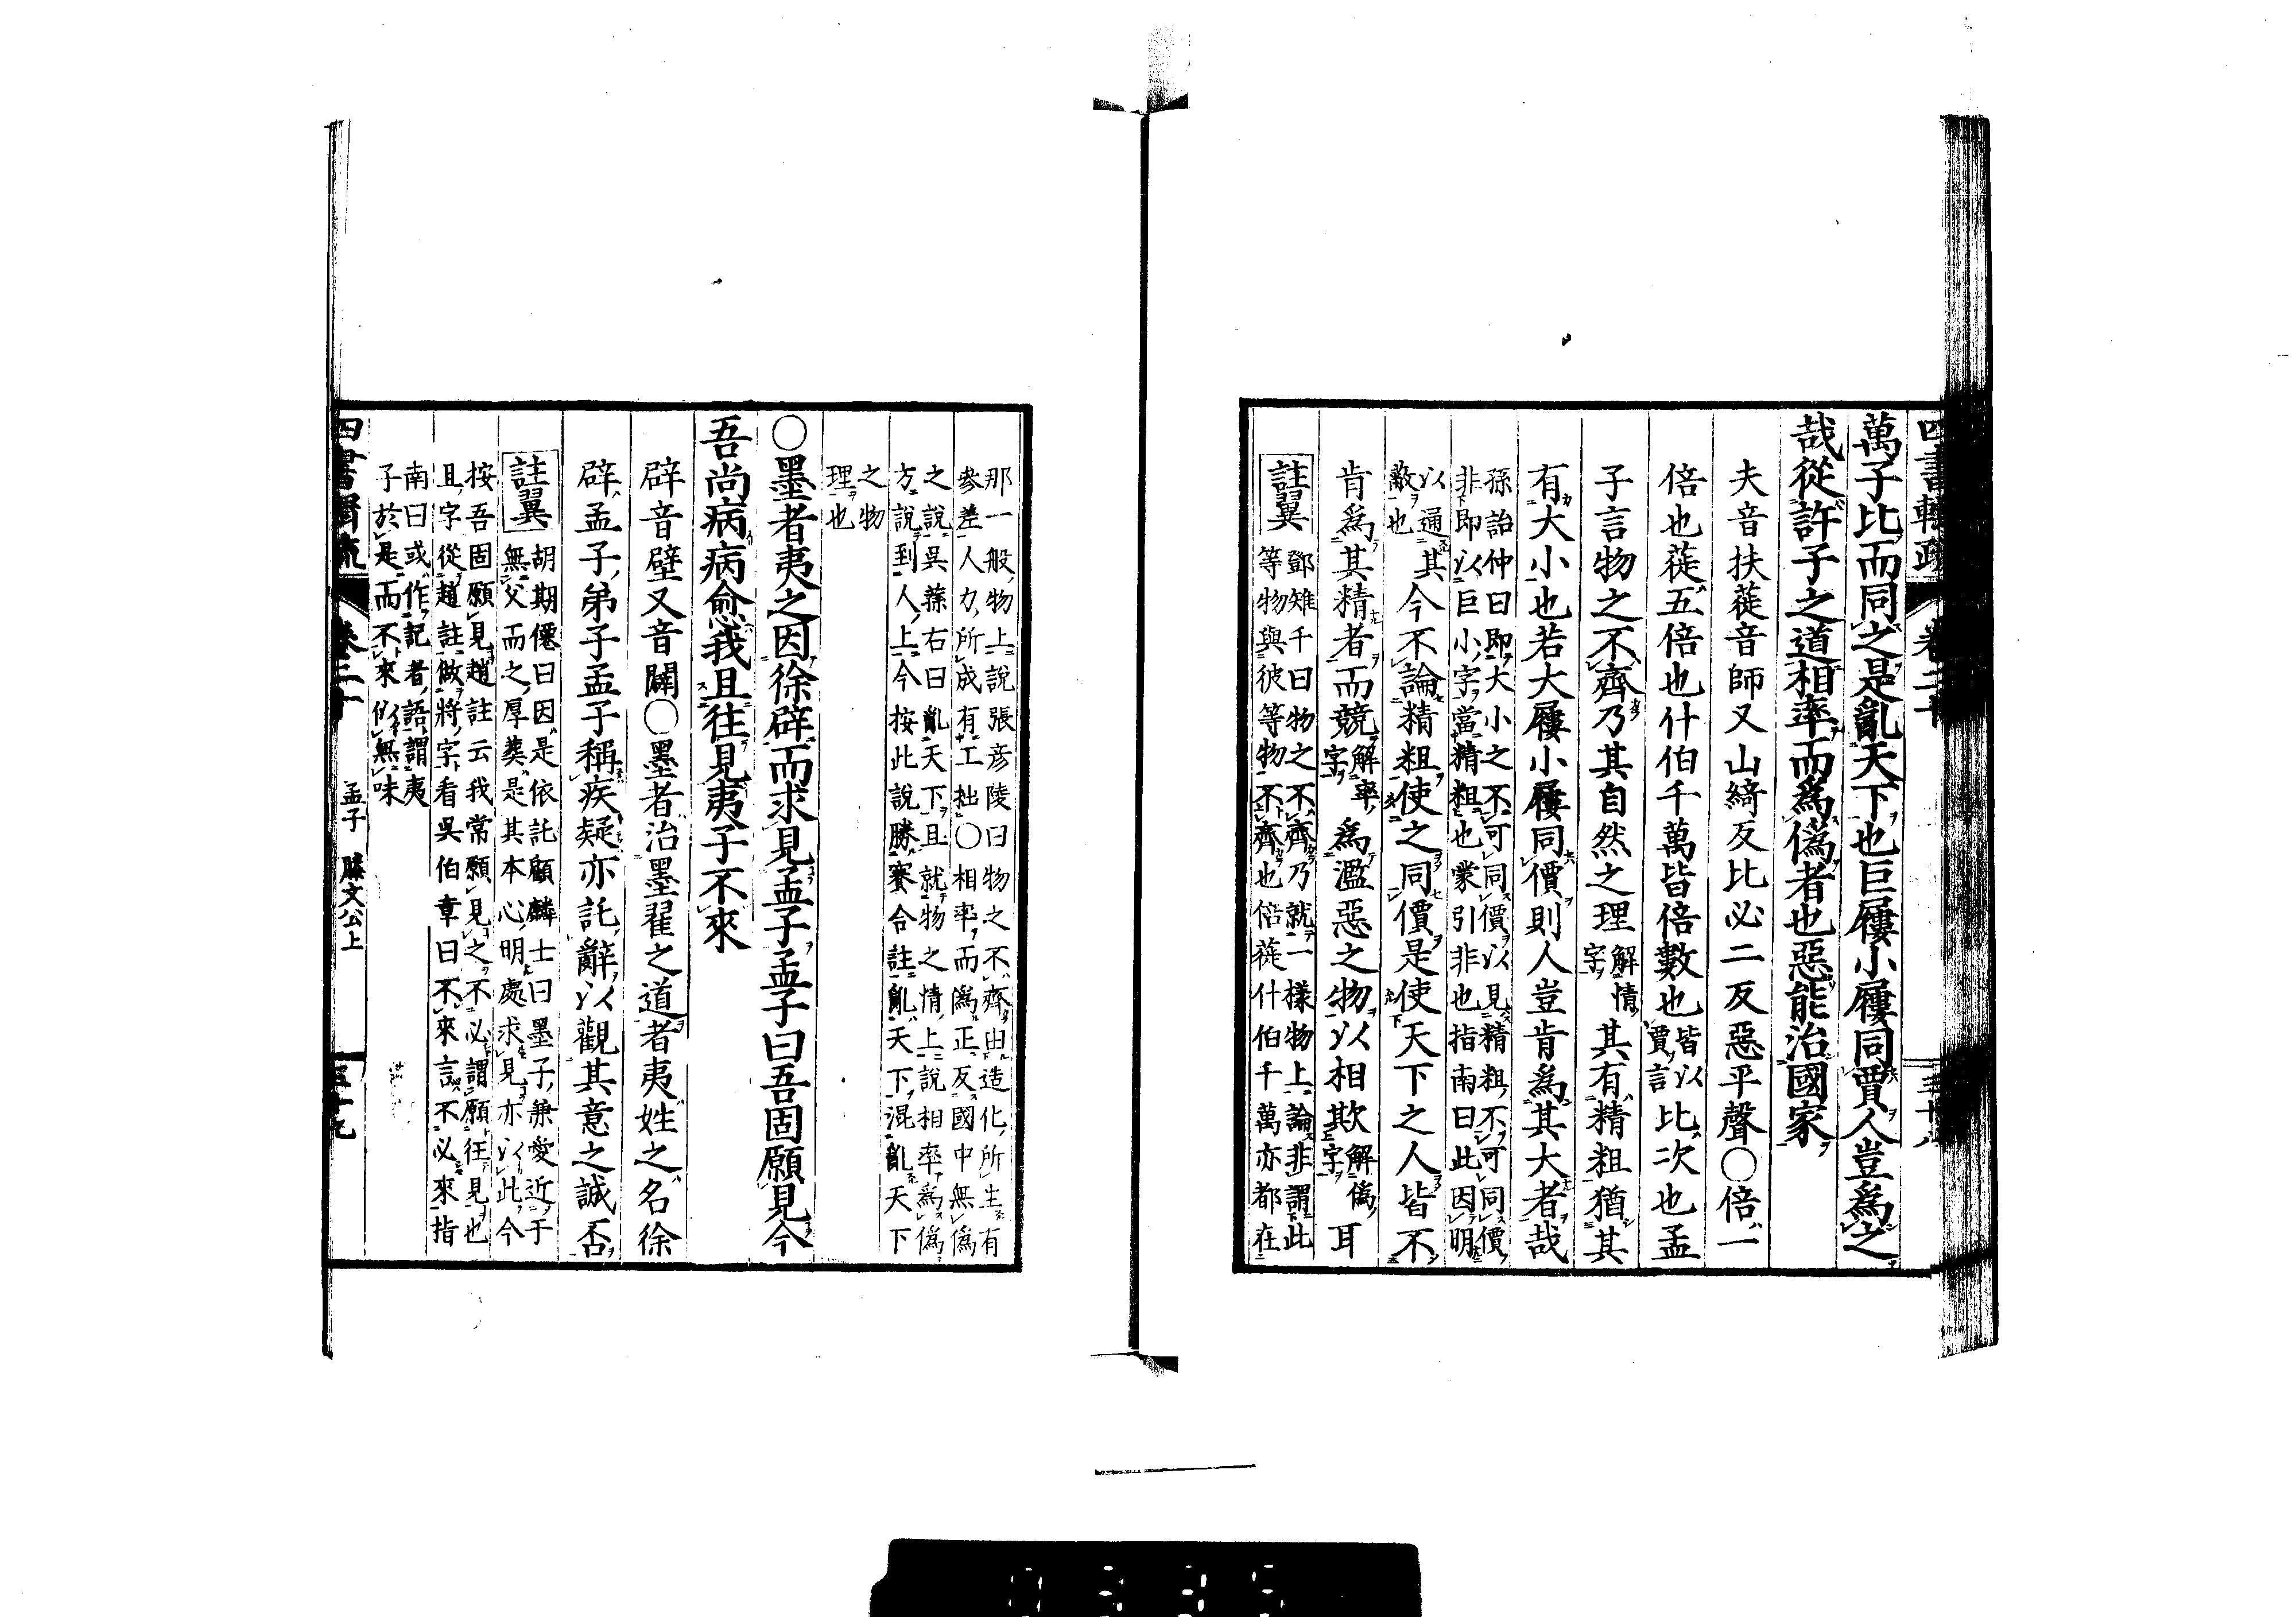 四書輯疏 卷二十 三十八
萬子比而同之是亂天下也巨屨小屨同賈人豈爲之
哉從許子之道相率而爲僞者也惡能治國家
夫音扶蓰音師又山綺反比必二反惡平聲〇倍一
倍也蓰五倍也什伯千萬皆倍數也皆以賈言比次也孟
子言物之不齊乃其自然之理解情字其有精粗猶其
有大小也若大屨小屨同價則人豈肯爲其大者哉
孫詒仲曰即大小之不可同價以見精粗不可同價
非即以巨小字當精粗也蒙引非也指南曰此因明
以通其蔽也今不論精粗使之同價是使天下之人皆不
肯爲其精者而競解率字爲濫惡之物以相欺解僞字耳
註翼 鄧雉千曰物之不齊乃就一樣物上論非謂此
等物與彼等物不齊也倍蓰什伯千萬亦都在
那一般物上說張彥陵曰物之不齊由造化所生有
參差人力所成有工拙〇相率而爲正反國中無僞
之說吳蓀右曰亂天下且就物之情上說相率爲僞
方說到人上今按此說勝賽合註亂天下混亂天下
之物
理也
〇墨者夷之因徐辟而求見孟子孟子曰吾固願見今
吾尚病病愈我且往見夷子不來
辟音壁又音闢〇墨者治墨翟之道者夷姓之名徐
辟孟子弟子孟子稱疾疑亦託辭以觀其意之誠否
註翼 胡期僊曰因是依託顧麟士曰墨子兼愛近于
無父而之厚葬是其本心明處求見亦以此今
按吾固願見趙註云我常願見之不必謂願往見也
且字從趙註做將字看吳伯章曰不來言不必來指
南曰或作記者語謂夷
子於是而不來似無味
四書輯疏 卷二十 孟子 滕文公上 三十九